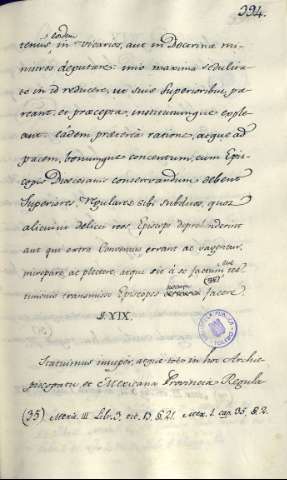 394.
eodem
tenus, in vicarios, aut in Doctrinæ mi-
nistros deputare: imo maxima sedulita-
te in id reducere, ut suis Superioribus, pa-
reant, et præcepta, institutumque exple-
ant. eadem præterea ratione, atque ad
pacem, bonumque concentum, cum Epis-
copis Diœcesanis conservandum debent
Superiores Regulares sibi subditos, quos
alicuius delicti reos Episcopi deprehenderint
aut qui extra Conventus errant ac vagentur,
increpare, ac plectere, atque de à se factum
timonio transmisso Episcopis facere.
(35)
§. XIX.
Statuimus insuper, atque toto in hoc Archie-
piscopatu, et Mexicana Provincia Regula
(35) Mexic. III Lib. 3. tit. 13. §. 21. Mex. I. cap. 35. §. 2.